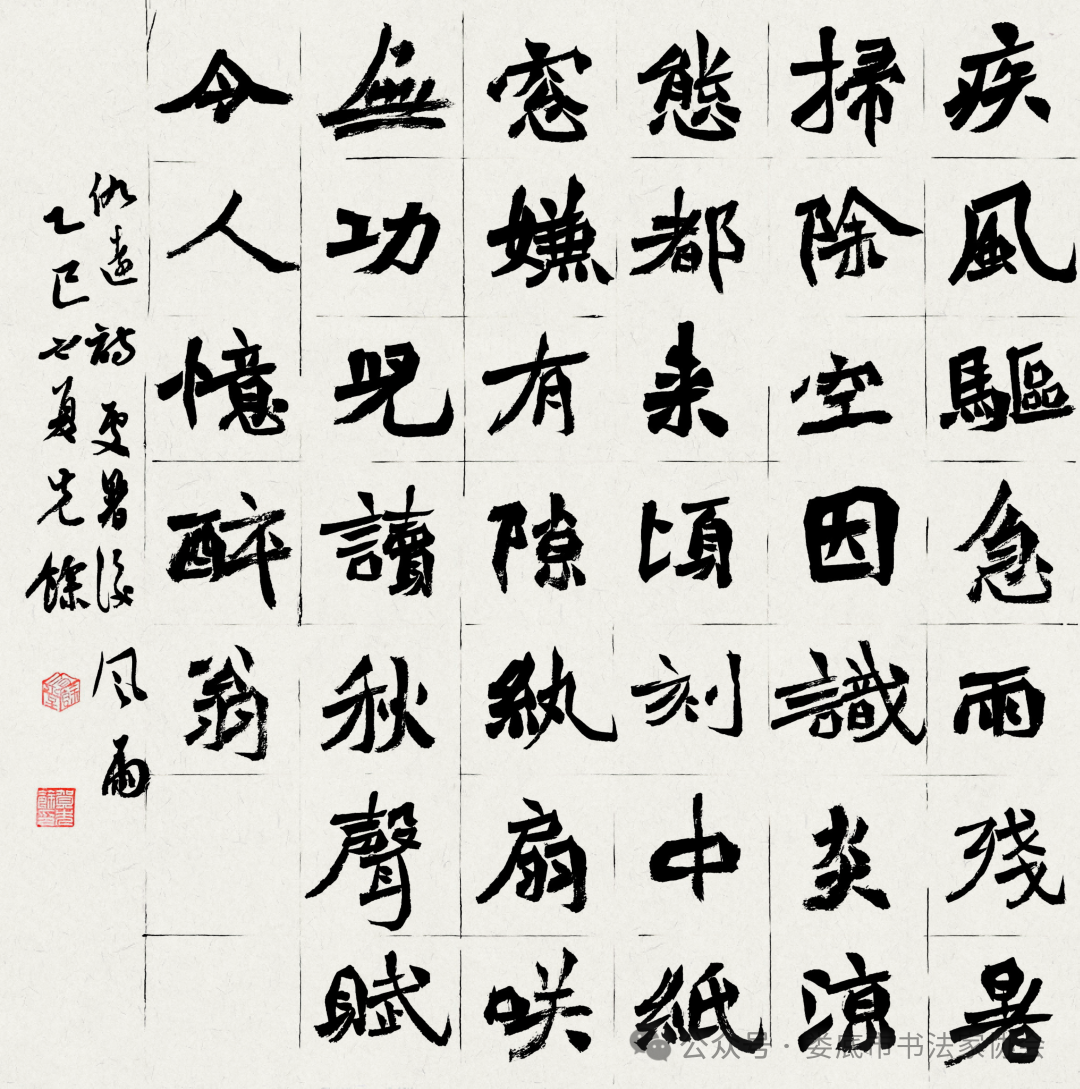 疾風驅急雨殘暑
掃除空因識炎涼
態都来頃刻中紙
窓嫌有隙紈扇咲
無功兒讀秋聲賦
令人憶醉翁
仇遠詩處暑後風雨
乙巳之夏先餘
公众号·娄底市书法家协会